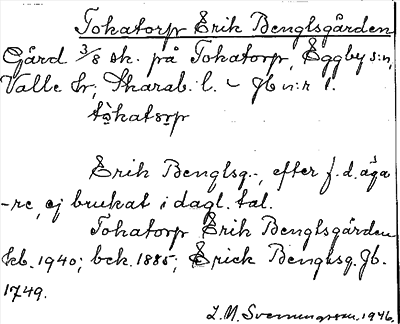 Tokatorp Erik Benglsgården
Gård 3/8 sk. på Tokatorp, Eggby s:n,
Valle hr; Skarab. l. – Jb n:r 1.
tokatorp
Erik Benglsg., efter f.d. äga
-re, ej brukat i dagl. tal.
Tokatorp Erik Benglsgården
keb. 1940; bek. 1885; Erick Bengtsg. Jb.
1749.
L.M. Svenungsson, 1946.